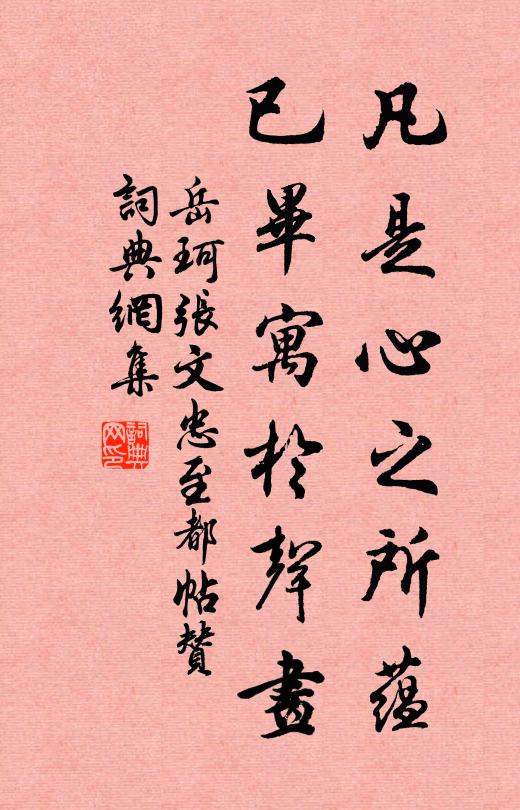 凡是心之所蘊
已畢寓於聲畫
岳珂張文忠至都帖贊
詞典網集
詞典
网印